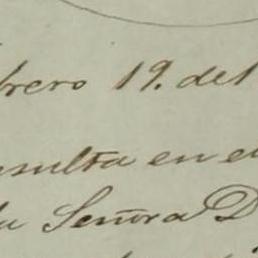 brero 19. del
nsulta en el
la Señora D